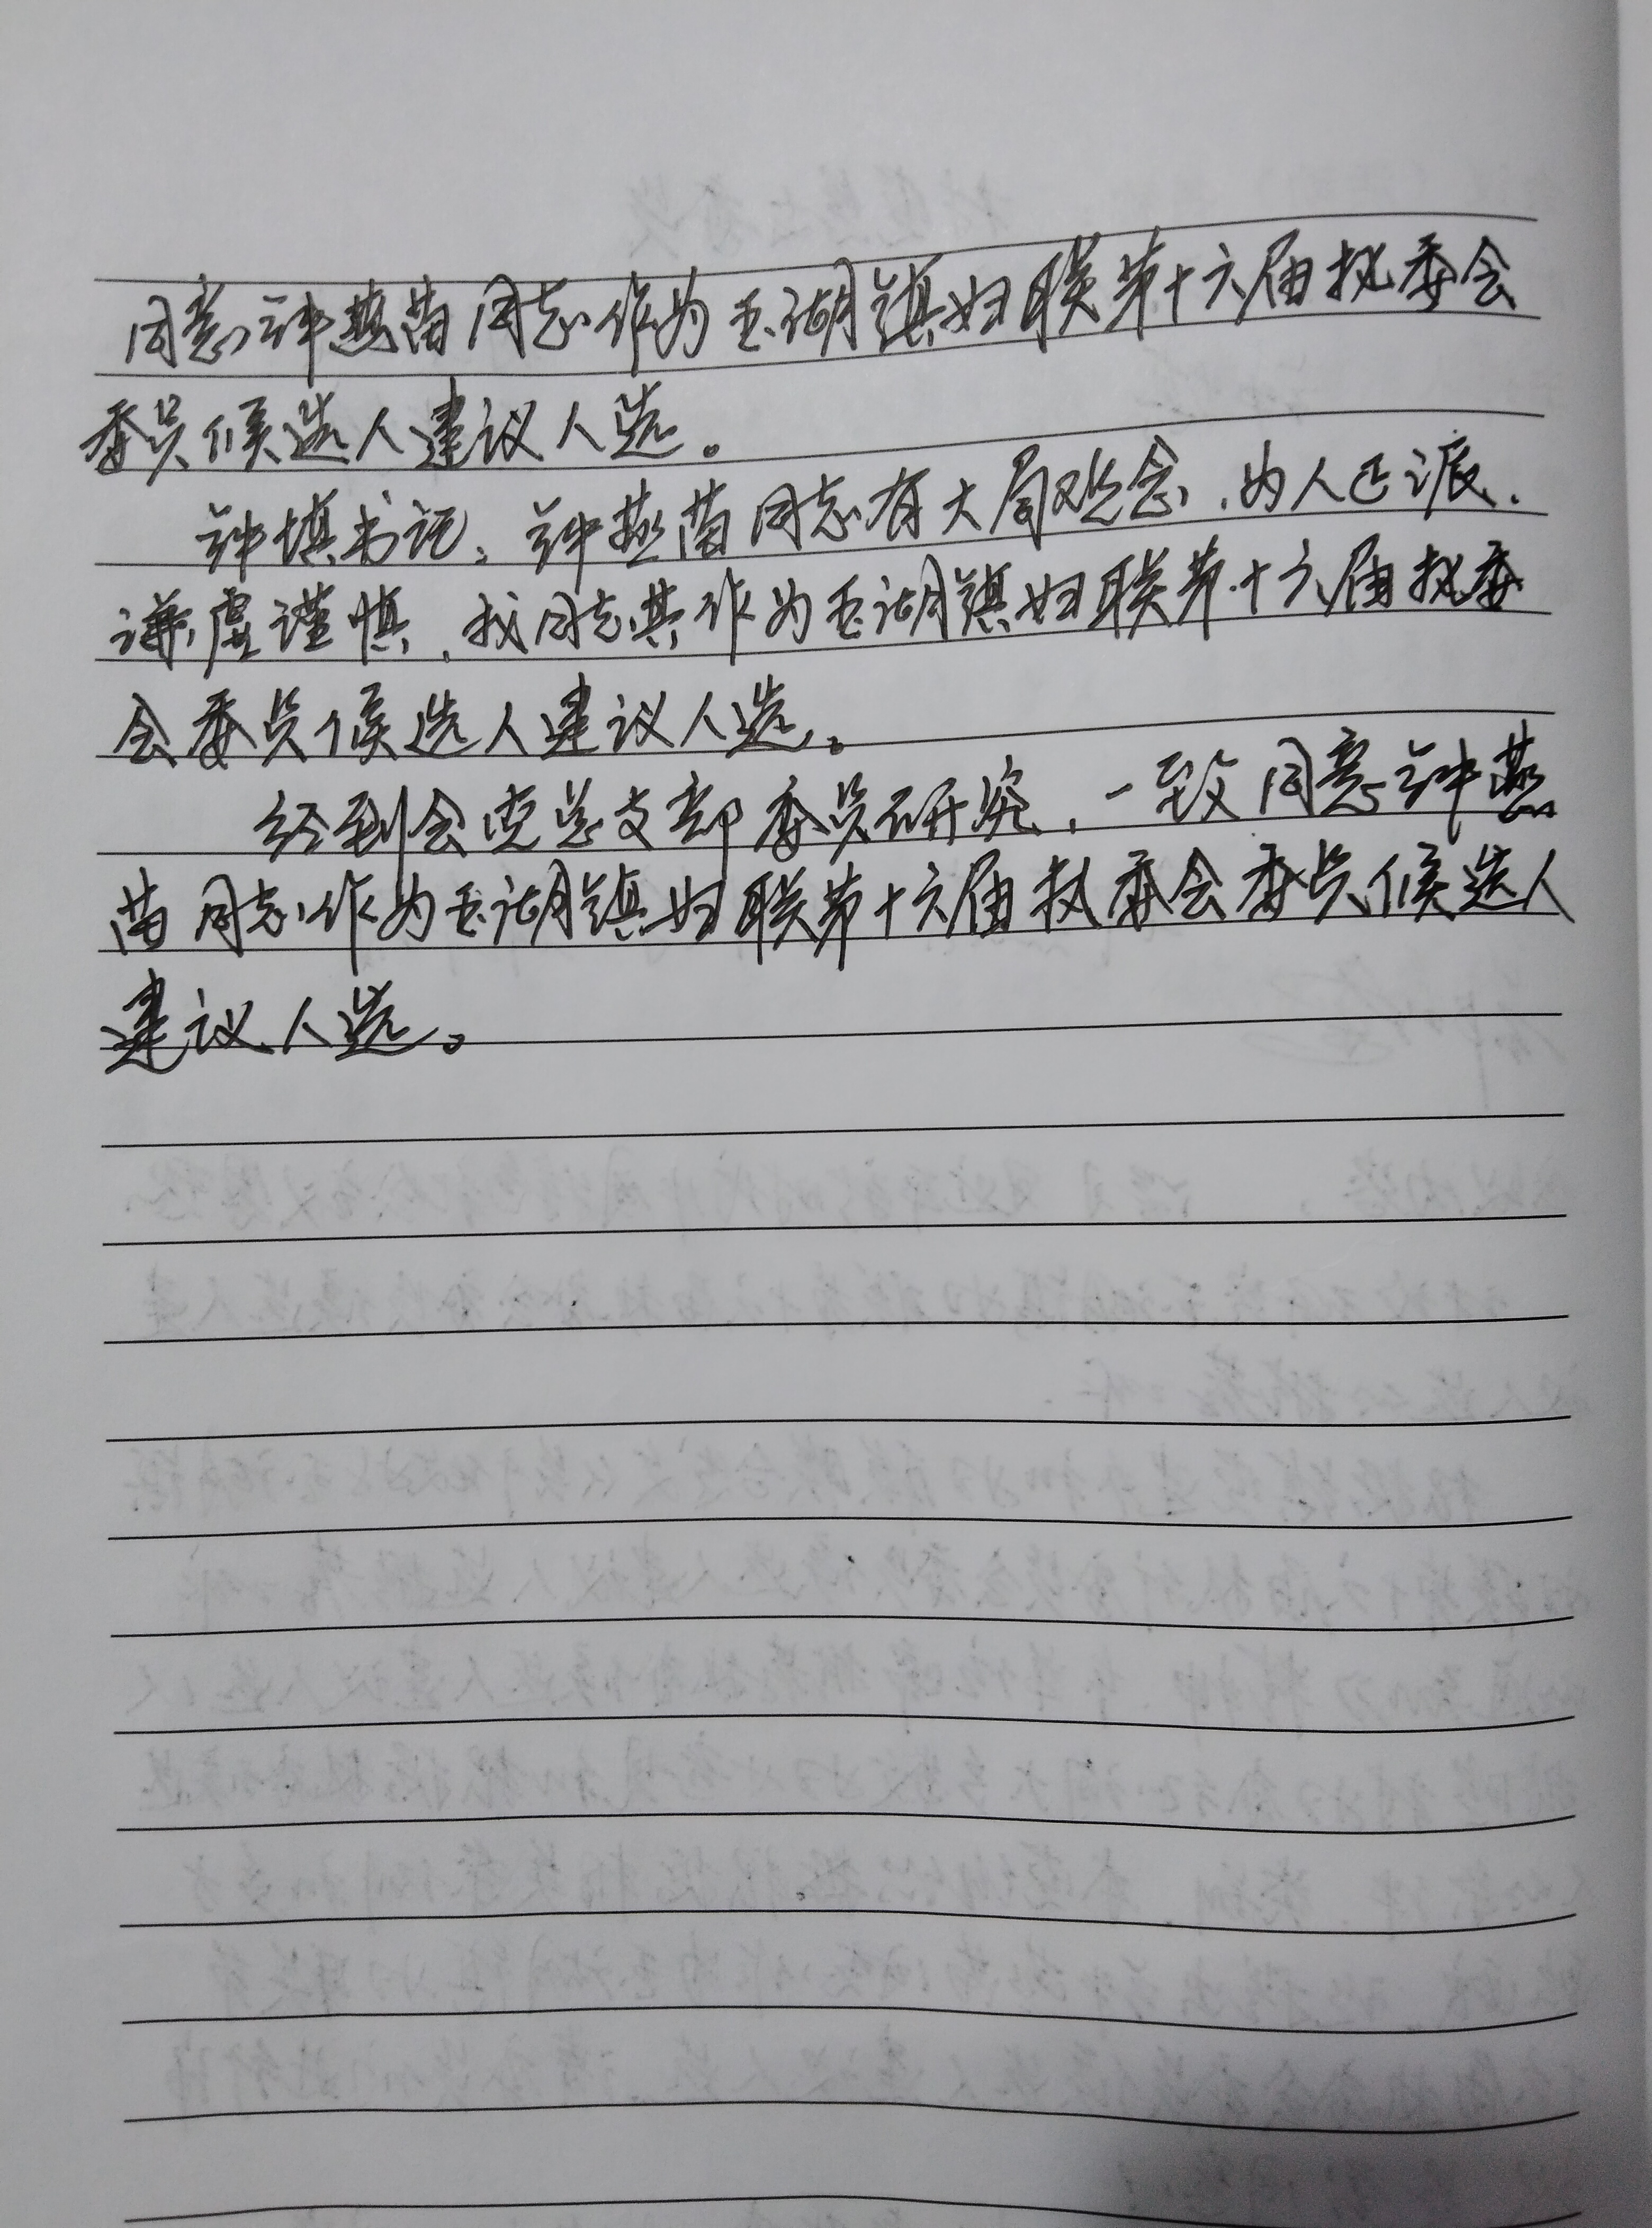 同意钟燕苗同志作为玉湖镇妇联第十六届执委会
委员候选人建议人选。
钟填书记：钟燕苗同志有大局观念，为人正派，
谦虚谨慎，我同意其作为玉湖镇妇联第十六届执委
会委员候选人建议人选。
经到会党总支部委员研究，一致同意钟燕
苗同志作为玉湖镇妇联第十六届执委会委员候选人
建议人选。